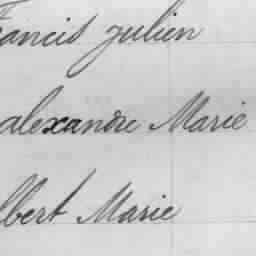 rancis julien
alexandre Marie
lbert Marie